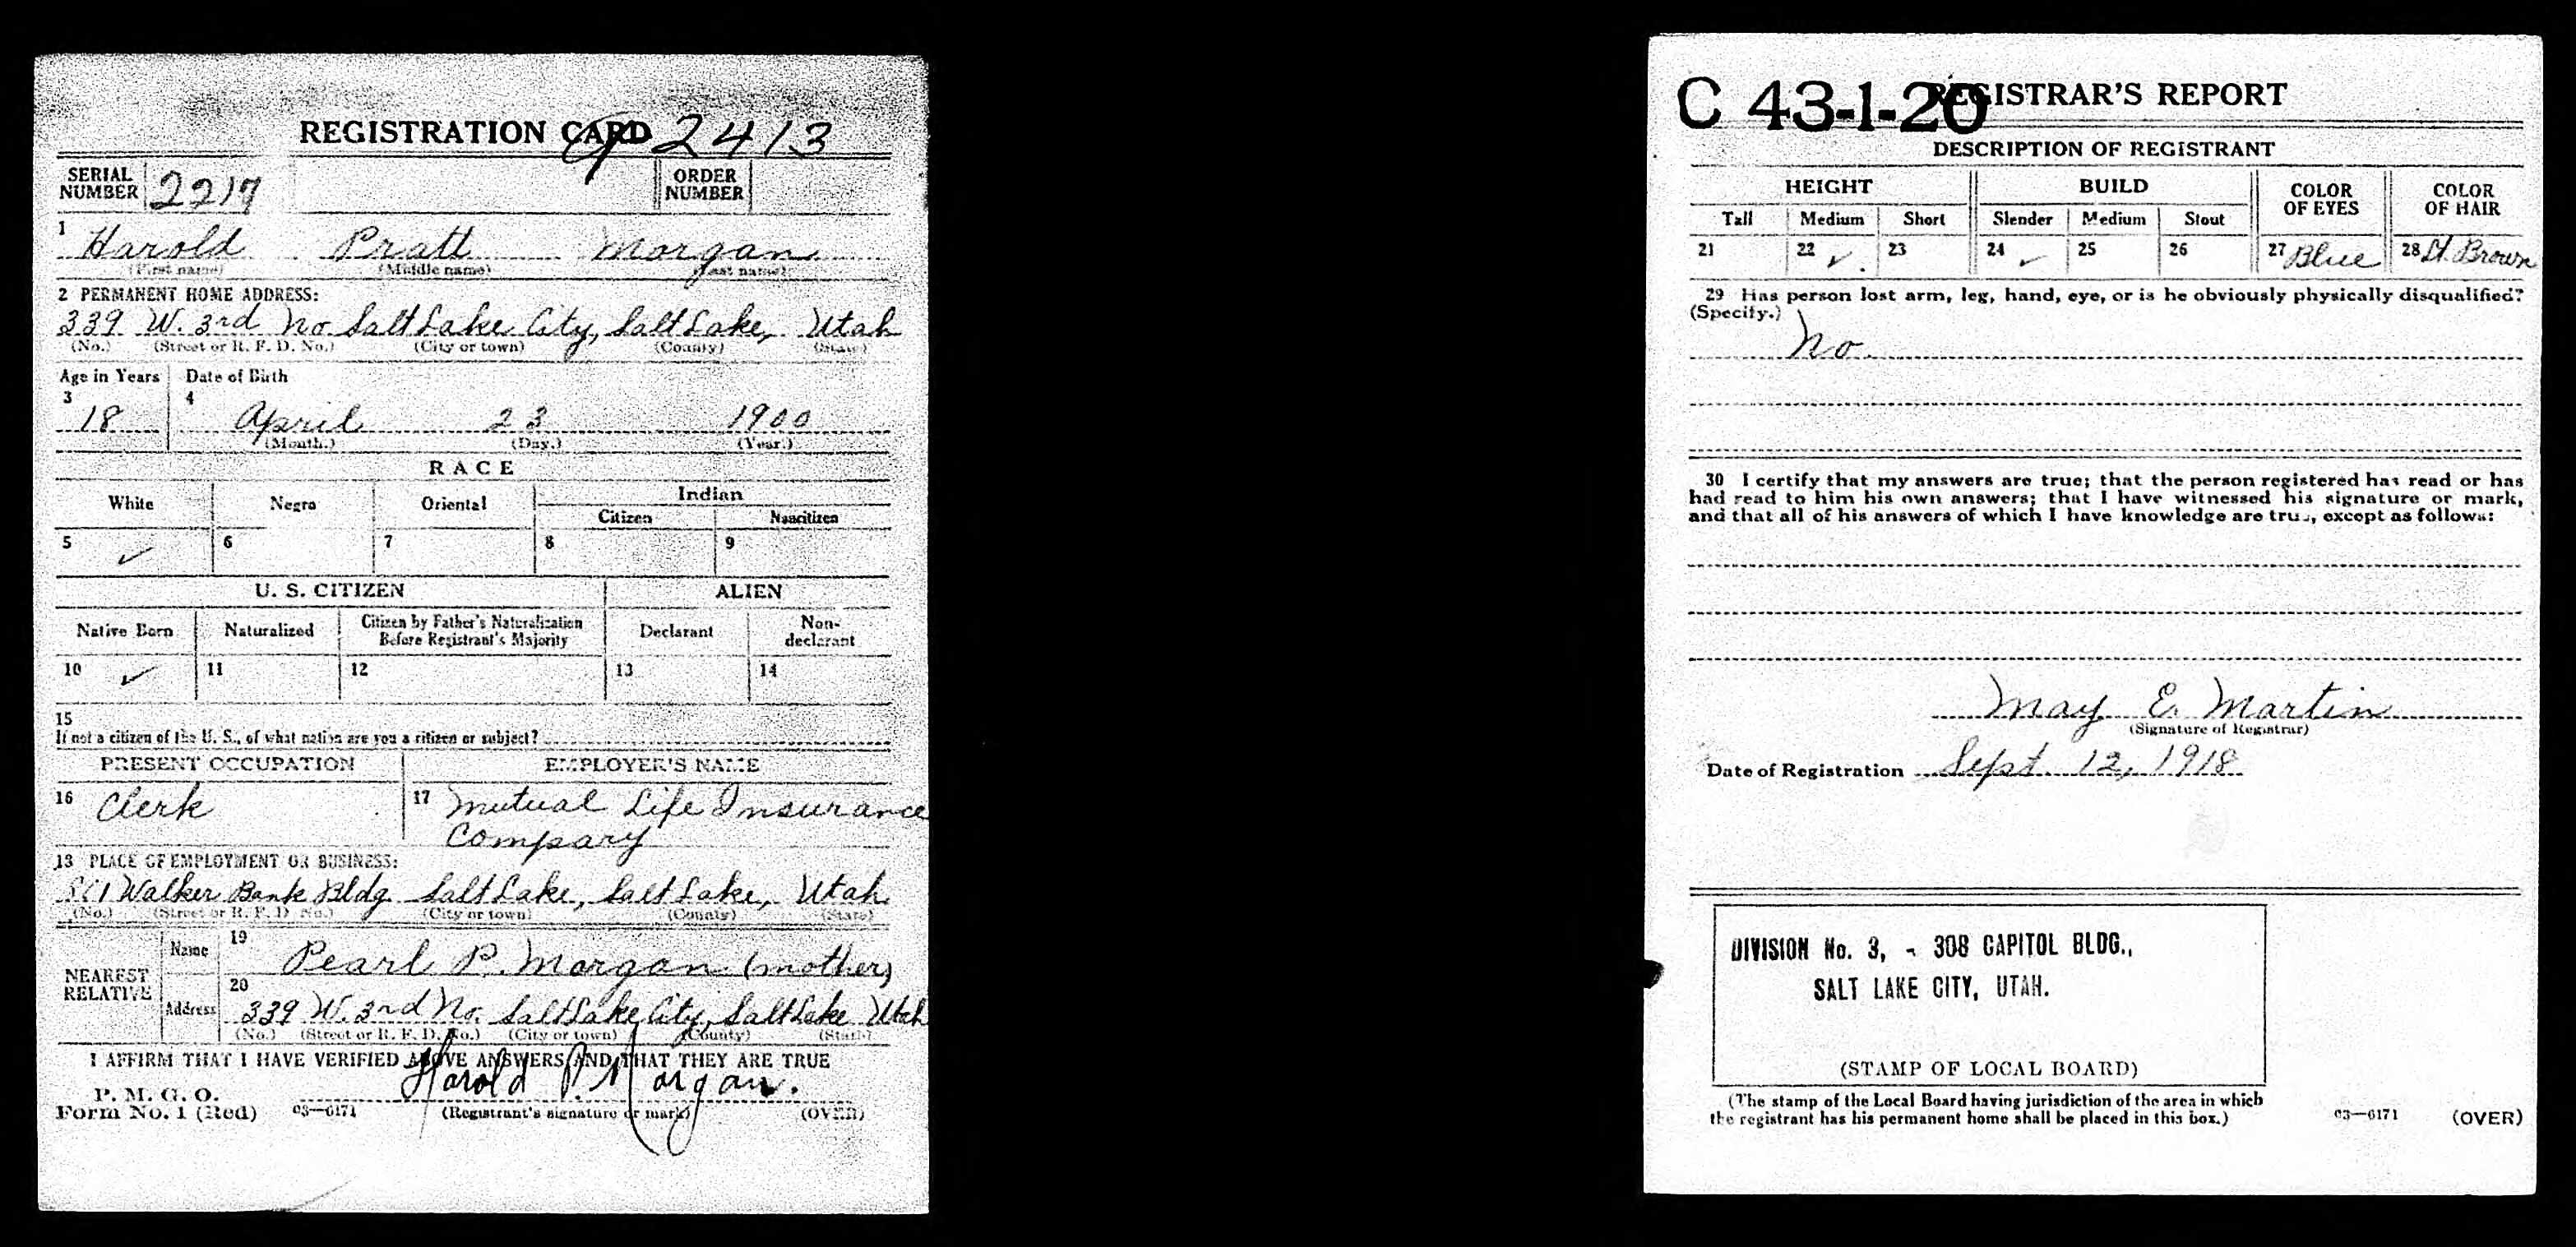 REGISTRATION CARD 2413
SERIAL NUMBER 2217 ORDER NUMBER
1 Harold Pratt Morgan
(First name) (Middle name) (Last name)
2 PERMANENT HOME ADDRESS:
339 W. 3rd No. Salt Lake City, Salt Lake, Utah
(No.) (Street or R. F. D. No.) (City or town) (County) (State)
Age in Years Date of Birth
3 18 4 April 23 1900
(Month.) (Day.) (Year.)
RACE
White Negro Oriental Indian
Citizen Noncitizen
5 ✓ 6 7 8 9
U. S. CITIZEN ALIEN
Native Born Naturalized Citizen by Father's Naturalization Before Registrant's Majority Declarant Non-declarant
10 ✓ 11 12 13 14
15
If not a citizen of the U. S., of what nation are you a citizen or subject?
PRESENT OCCUPATION EMPLOYER'S NAME
16 Clerk 17 Mutual Life Insurance
Company
18 PLACE OF EMPLOYMENT OR BUSINESS:
Walker Bank Bldg. Salt Lake, Salt Lake, Utah
(No.) (Street or R. F. D. No.) (City or town) (County) (State)
NEAREST RELATIVE Name 19 Pearl P. Morgan (mother)
Address 20 339 W. 3rd No. Salt Lake City, Salt Lake Utah
(No.) (Street or R. F. D. No.) (City or town) (County) (State)
I AFFIRM THAT I HAVE VERIFIED ABOVE ANSWERS AND THAT THEY ARE TRUE
Harold P. Morgan.
P. M. G. O.
Form No. 1 (Red) 03—6171 (Registrant's signature or mark) (OVER)
C 43-1-20 REGISTRAR'S REPORT
DESCRIPTION OF REGISTRANT
HEIGHT BUILD COLOR OF EYES COLOR OF HAIR
Tall Medium Short Slender Medium Stout
21 22 ✓ 23 24 ✓ 25 26 27 Blue 28 Lt. Brown
29 Has person lost arm, leg, hand, eye, or is he obviously physically disqualified?
(Specify.)
No.
30 I certify that my answers are true; that the person registered has read or has
had read to him his own answers; that I have witnessed his signature or mark,
and that all of his answers of which I have knowledge are true, except as follows:
May E. Martin
(Signature of Registrar)
Date of Registration Sept. 12, 1918
DIVISION No. 3, - 308 CAPITOL BLDG.,
SALT LAKE CITY, UTAH.
(STAMP OF LOCAL BOARD)
(The stamp of the Local Board having jurisdiction of the area in which
the registrant has his permanent home shall be placed in this box.)
03—6171 (OVER)